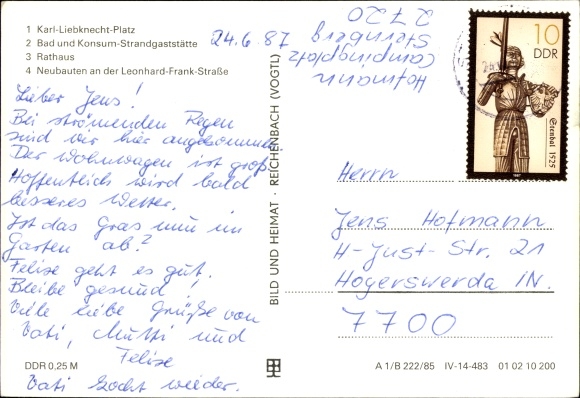 1 Karl-Liebknecht-Platz
2 Bad und Konsum-Strandgaststätte
3 Rathaus
4 Neubauten an der Leonhard-Frank-Straße
24.6.87
Lieber Jens!
Bei strömenden Regen
sind wir hier angekommen.
Der Wohnwagen ist groß.
Hoffentlich wird bald
besseres Wetter.
Ist das Gras nun im
Garten ab?
Felixe geht es gut.
Bleibe gesund!
Viele liebe Grüße von
Vati, Mutti und
Felixe
Vati kocht wieder.
DDR 0,25 M
BILD UND HEIMAT · REICHENBACH (VOGTL)
Hofmann
Campingplatz
Sternberg
2720
10
DDR
Stenbal 1525
1987
Herrn
Jens Hofmann
H-Just-Str. 21
Hoyerswerda IN.
7700
A 1/B 222/85 IV-14-483 01 02 10 200